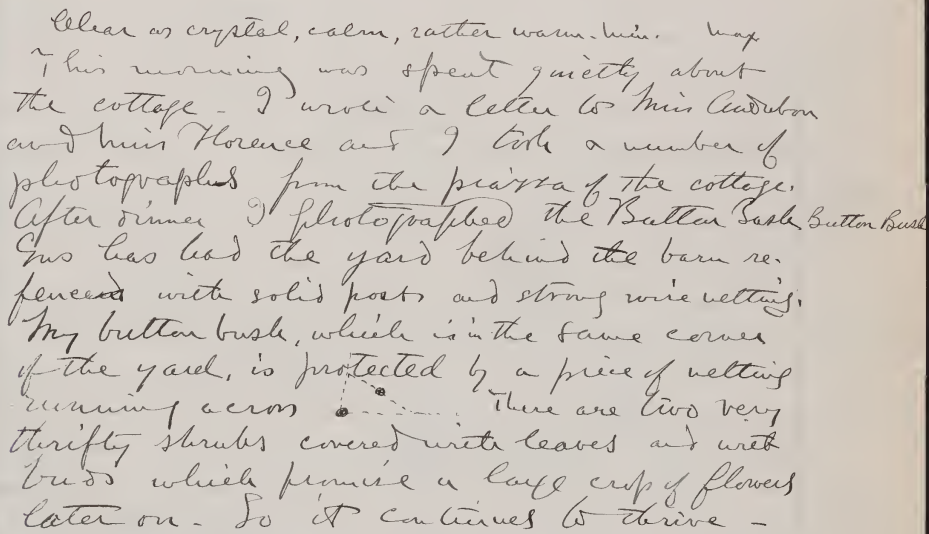 Clear as crystal, calm, rather warm. Min. Max
This morning was spent quietly about
the cottage - I wrote a letter to Miss Audubon
and Miss Florence and I took a number of
photographs from the piazza of the cottage.
After dinner I photographed the Button Bush Button Bush
Gus has had the yard behind the barn re-
fenced with solid posts and strong wire netting.
My button bush, which is in the same corner
of the yard, is protected by a piece of netting
running across There are two very
thrifty shrubs covered with leaves and with
buds which promise a large crop of flowers
later on - So it continues to thrive -